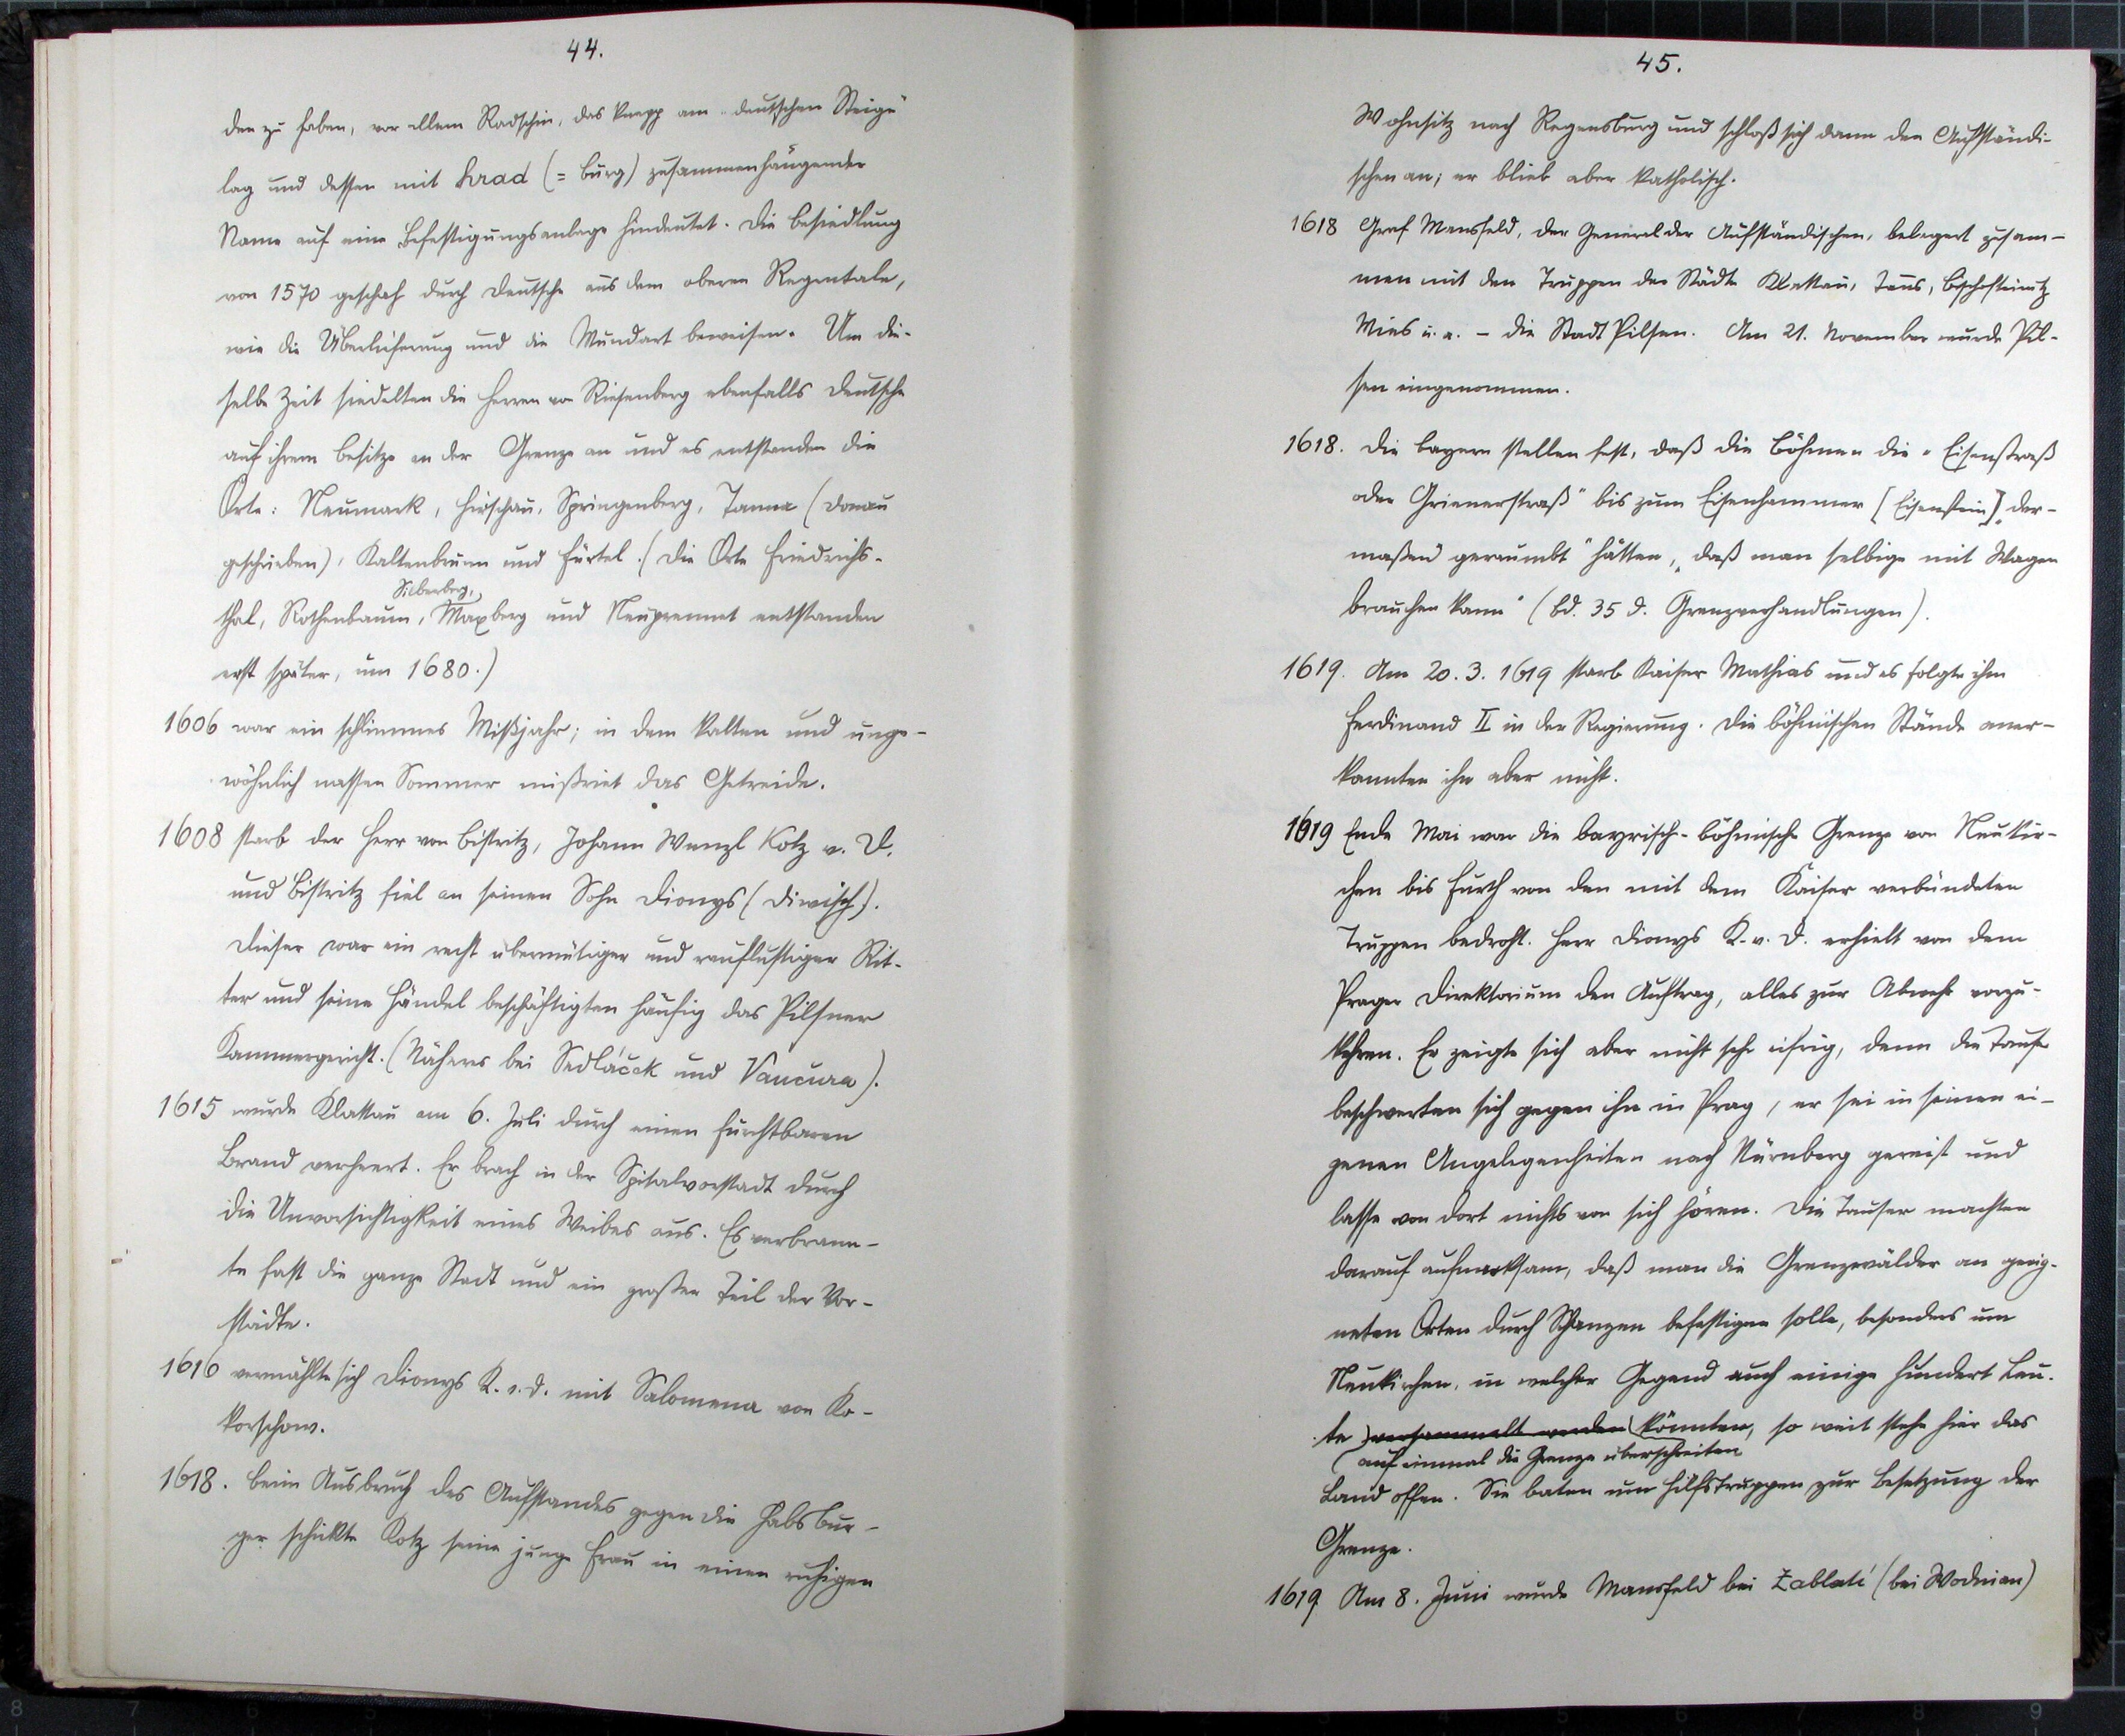 44.
den zu haben, vor allem Radschin, das knapp am „deutschen Steige"
lag und dessen mit hrad (= Burg) zusammenhängender
Name auf eine Befestigungsanlage hindeutet. Die Besiedlung
von 1570 geschah durch Deutsche aus dem oberen Regentale,
wie die Überlieferung und die Mundart beweisen. Um die-
selbe Zeit siedelten die Herren von Riesenberg ebenfalls Deutsche
auf ihrem Besitze an der Grenze an und es entstanden die
Orte: Neumark, Hirschau, Springenberg, Tanna (Donau
geschrieben), Kaltenbrunn und Fürtel. (Die Orte Friedrichs-
thal, Rothenbaum, Silberberg, Maxberg und Neuprennet entstanden
erst später, um 1680.)
1606 war ein schlimmes Mißjahr; in dem kalten und unge-
wöhnlich nassen Sommer mißriet das Getreide.
1608 starb der Herr von Bistritz, Johann Wenzl Kotz v. D.
und Bistritz fiel an seinen Sohn Dionys (Diwisch).
Dieser war ein recht übermütiger und rauflustiger Rit-
ter und seine Händel beschäftigten häufig das Pilsner
Kammergericht. (Näheres bei Sedláček und Vančura).
1615 wurde Klattau am 6. Juli durch einen furchtbaren
Brand verheert. Er brach in der Spitalvorstadt durch
die Unvorsichtigkeit eines Weibes aus. Es verbrann-
te fast die ganze Stadt und ein großer Teil der Vor-
städte.
1616 vermählte sich Dionys K. v. D. mit Salomena von Ko-
korschow.
1618. Beim Ausbruch des Aufstandes gegen die Habsbur-
ger schickte Kotz seine junge Frau in einen ruhigen
45.
Wohnsitz nach Regensburg und schloß sich dann den Aufständi-
schen an; er blieb aber katholisch.
1618 Graf Mansfeld, der General der Aufständischen, belagert zusam-
men mit den Truppen der Städte Klattau, Taus, Bischofteinitz
Mies u. a. – die Stadt Pilsen. Am 21. November wurde Pil-
sen eingenommen.
1618. Die Bayern stellen fest, daß die Böhmen die „Eisenstraß
oder Grienerstraß" bis zum Eisenhammer [Eisenstein] „der-
maßen geraumbt" hätten, „daß man selbige mit Wagen
brauchen kann" (Bd. 35 d. Grenzverhandlungen).
1619. Am 20. 3. 1619 starb Kaiser Mathias und es folgte ihm
Ferdinand II in der Regierung. Die böhmischen Stände aner-
kannten ihn aber nicht.
1619 Ende Mai war die bayrisch-böhmische Grenze von Neukir-
chen bis Furth von den mit dem Kaiser verbündeten
Truppen bedroht. Herr Dionys K. v. D. erhielt von dem
Prager Direktorium den Auftrag, alles zur Abwehr vorzu-
kehren. Er zeigte sich aber nicht sehr eifrig, denn die Tauser
beschwerten sich gegen ihn in Prag, er sei in seinen ei-
genen Angelegenheiten nach Nürnberg gereist und
lasse von dort nichts von sich hören. Die Tauser machten
darauf aufmerksam, daß man die Grenzwälder an geeig-
neten Orten durch Schanzen befestigen solle, besonders um
Neukirchen, in welcher Gegend auch einige hundert Leu-
te versammelt werden könnten, so weit stehe hier das
auf einmal die Grenze überschreiten
Land offen. Sie baten um Hilfstruppen zur Besetzung der
Grenze.
1619 Am 8. Juni wurde Mansfeld bei Žablati (bei Wodnian)